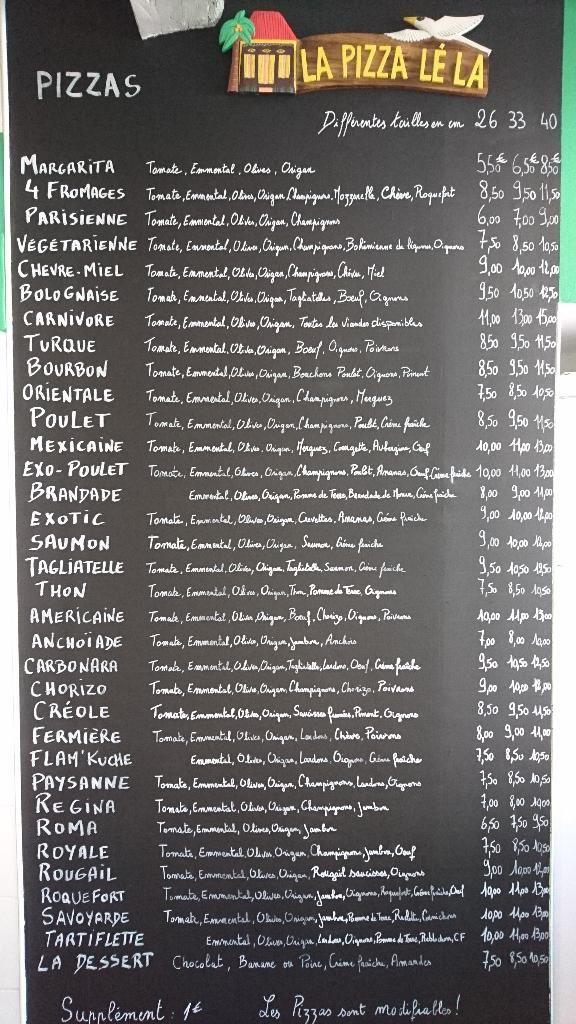 LA PIZZA LÉ LA
PIZZAS
Différentes tailles en cm 26 33 40
MARGARITA Tomate, Emmental, Olives, Origan 5,50€ 6,50€ 8,50€
4 FROMAGES Tomate, Emmental, Olives, Origan, Champignons, Mozzarella, Chèvre, Roquefort 8,50 9,50 11,50
PARISIENNE Tomate, Emmental, Olives, Origan, Champignons 6,00 7,00 9,00
VÉGÉTARIENNE Tomate, Emmental, Olives, Origan, Champignons, Bohémienne de légumes, Oignons 7,50 8,50 10,50
CHEVRE-MIEL Tomate, Emmental, Olives, Origan, Champignons, Chèvre, Miel 9,00 10,00 12,00
BOLOGNAISE Tomate, Emmental, Olives, Origan, Tagliatelles, Boeuf, Oignons 9,50 10,50 12,50
CARNIVORE Tomate, Emmental, Olives, Origan, Toutes les viandes disponibles 11,00 13,00 15,00
TURQUE Tomate, Emmental, Olives, Origan, Boeuf, Oignons, Poivrons 8,50 9,50 11,50
BOURBON Tomate, Emmental, Olives, Origan, Bouchons Poulet, Oignons, Piment 8,50 9,50 11,50
ORIENTALE Tomate, Emmental, Olives, Origan, Champignons, Merguez 7,50 8,50 10,50
POULET Tomate, Emmental, Olives, Origan, Champignons, Poulet, Crème fraîche 8,50 9,50 11,50
MEXICAINE Tomate, Emmental, Olives, Origan, Merguez, Courgette, Aubergine, Oeuf 10,00 11,00 13,00
EXO-POULET Tomate, Emmental, Olives, Origan, Champignons, Poulet, Ananas, Oeuf, Crème fraîche 10,00 11,00 13,00
BRANDADE Emmental, Olives, Origan, Pomme de Terre, Brandade de Morue, Crème fraîche 8,00 9,00 11,00
EXOTIC Tomate, Emmental, Olives, Origan, Crevettes, Ananas, Crème fraîche 9,00 10,00 12,00
SAUMON Tomate, Emmental, Olives, Origan, Saumon, Crème fraîche 9,00 10,00 12,00
TAGLIATELLE Tomate, Emmental, Olives, Origan, Tagliatelle, Saumon, Crème fraîche 9,50 10,50 12,50
THON Tomate, Emmental, Olives, Origan, Thon, Pomme de Terre, Oignons 7,50 8,50 10,50
AMERICAINE Tomate, Emmental, Olives, Origan, Boeuf, Chorizo, Oignons, Poivrons 10,00 11,00 13,00
ANCHOÏADE Tomate, Emmental, Olives, Origan, Jambon, Anchois 7,00 8,00 10,00
CARBONARA Tomate, Emmental, Olives, Origan, Tagliatelle, Lardons, Oeuf, Crème fraîche 9,50 10,50 12,50
CHORIZO Tomate, Emmental, Olives, Origan, Champignons, Chorizo, Poivrons 9,00 10,00 12,00
CRÉOLE Tomate, Emmental, Olives, Origan, Saucisses fumées, Piment, Oignons 8,50 9,50 11,50
FERMIÈRE Tomate, Emmental, Olives, Origan, Lardons, Chèvre, Poivrons 8,00 9,00 11,00
FLAM'KUCHE Emmental, Olives, Origan, Lardons, Oignons, Crème fraîche 7,50 8,50 10,50
PAYSANNE Tomate, Emmental, Olives, Origan, Champignons, Lardons, Oignons 7,50 8,50 10,50
REGINA Tomate, Emmental, Olives, Origan, Champignons, Jambon 7,00 8,00 10,00
ROMA Tomate, Emmental, Olives, Origan, Jambon 6,50 7,50 9,50
ROYALE Tomate, Emmental, Olives, Origan, Champignons, Jambon, Oeuf 7,50 8,50 10,50
ROUGAIL Tomate, Emmental, Olives, Origan, Rougail saucisses, Oignons 9,00 10,00 12,00
ROQUEFORT Tomate, Emmental, Olives, Origan, Jambon, Oignons, Roquefort, Crème fraîche, Oeuf 10,00 11,00 13,00
SAVOYARDE Tomate, Emmental, Olives, Origan, Jambon, Pomme de Terre, Raclette, Cornichons 10,00 11,00 13,00
TARTIFLETTE Emmental, Olives, Origan, Lardons, Oignons, Pomme de Terre, Reblochon, CF 10,00 11,00 13,00
LA DESSERT Chocolat, Banane ou Poire, Crème fraîche, Amandes 7,50 8,50 10,50
Supplément : 1€ Les Pizzas sont modifiables !